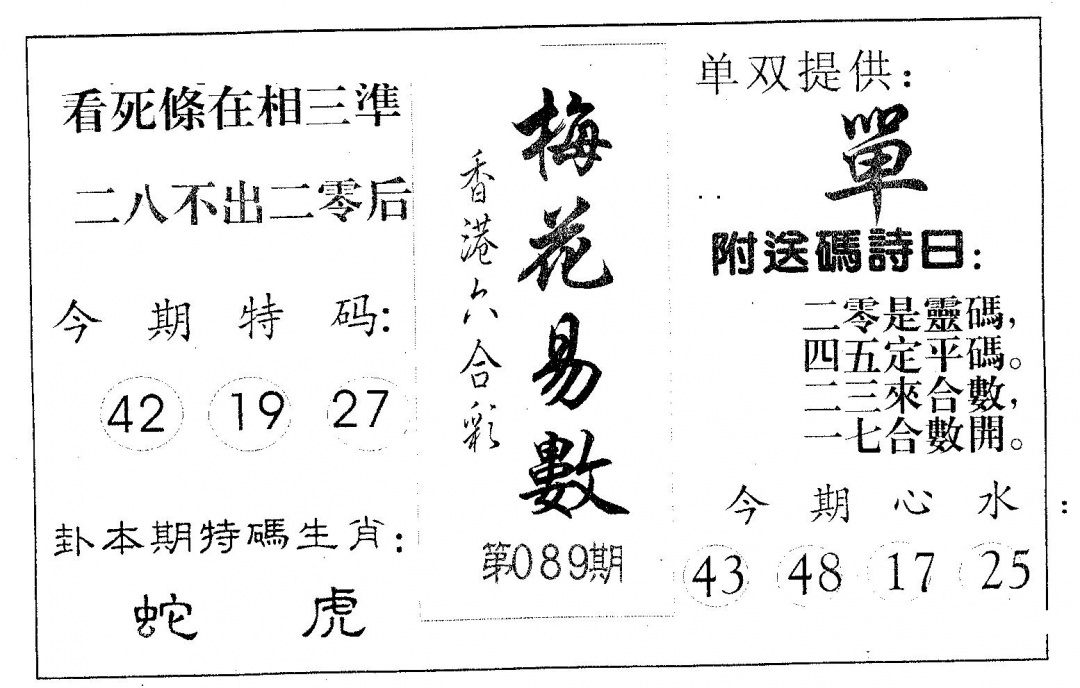 看死條在相三準
二八不出二零后
今期特码:
42 19 27
卦本期特碼生肖:
蛇 虎
梅花易數
香港六合彩
第089期
单双提供:
單
附送碼詩曰:
二零是靈碼,
四五定平碼。
二三來合數,
一七合數開。
今期心水:
43 48 17 25